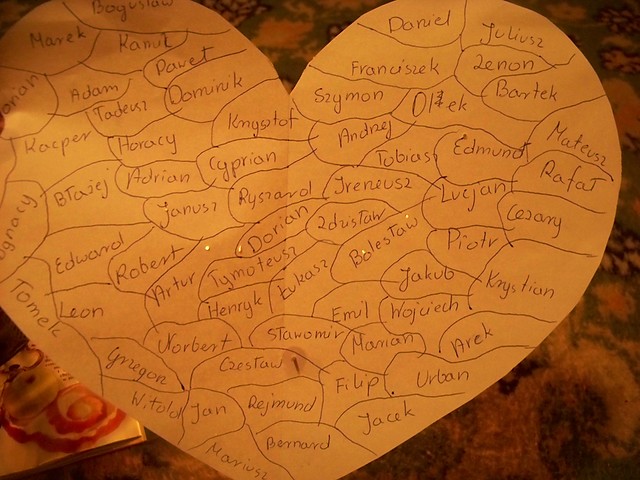 Bogusław
Marek
Kamil
Paweł
Adam
Tadeusz
Dominik
Kacper
Horacy
Krzysztof
Cyprian
Błażej
Adrian
Janusz
Ryszard
Ignacy
Edward
Robert
Dorian
Artur
Tymoteusz
Henryk
Łukasz
Tomek
Leon
Norbert
Grzegorz
Czesław
Sławomir
Witold
Jan
Rejmund
Mariusz
Bernard
Daniel
Juliusz
Franciszek
Zenon
Szymon
Olek
Bartek
Andrzej
Tobiasz
Edmund
Mateusz
Rafał
Ireneusz
Lucjan
Cezary
Zdzisław
Bolesław
Piotr
Jakub
Krystian
Emil
Wojciech
Marian
Arek
Filip
Urban
Jacek